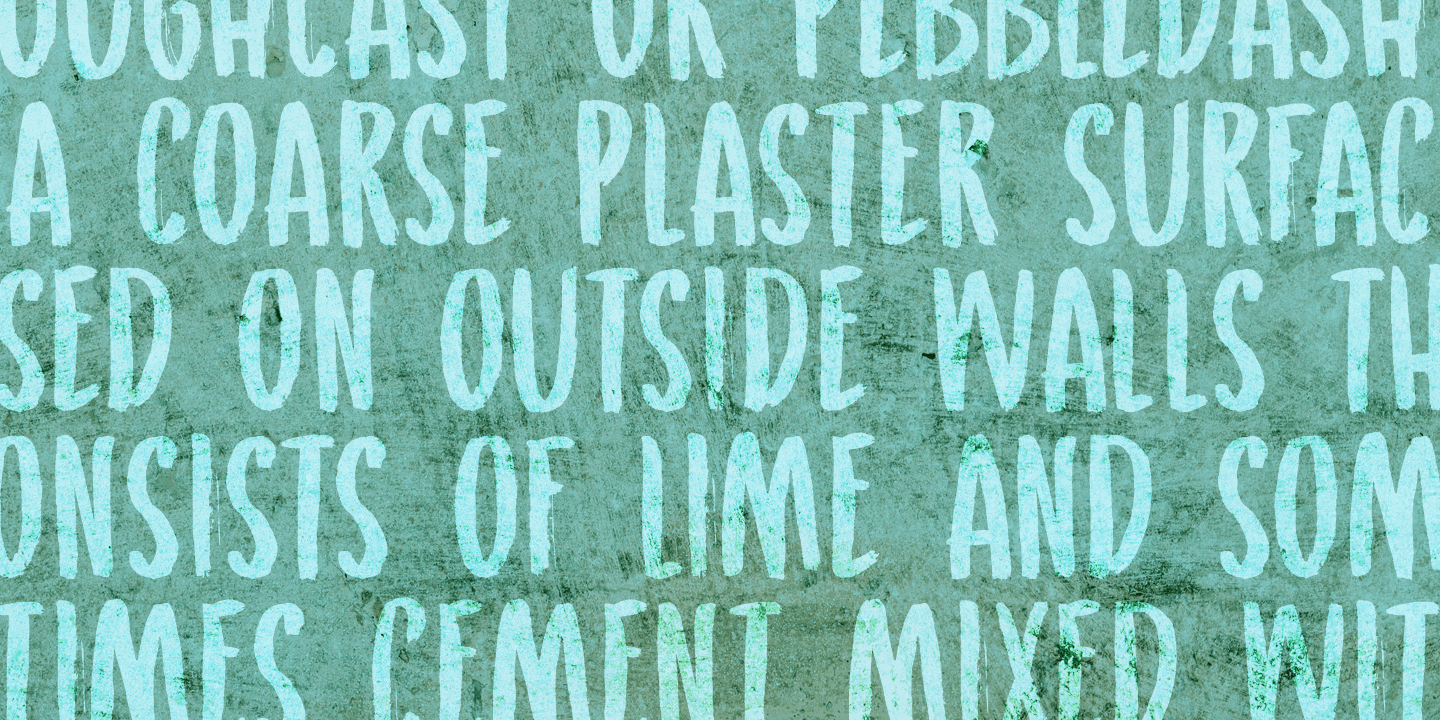 OUGHCAST OR PEBBLEDASH
A COARSE PLASTER SURFAC
SED ON OUTSIDE WALLS TH
ONSISTS OF LIME AND SOM
TIMES CEMENT MIXED WIT